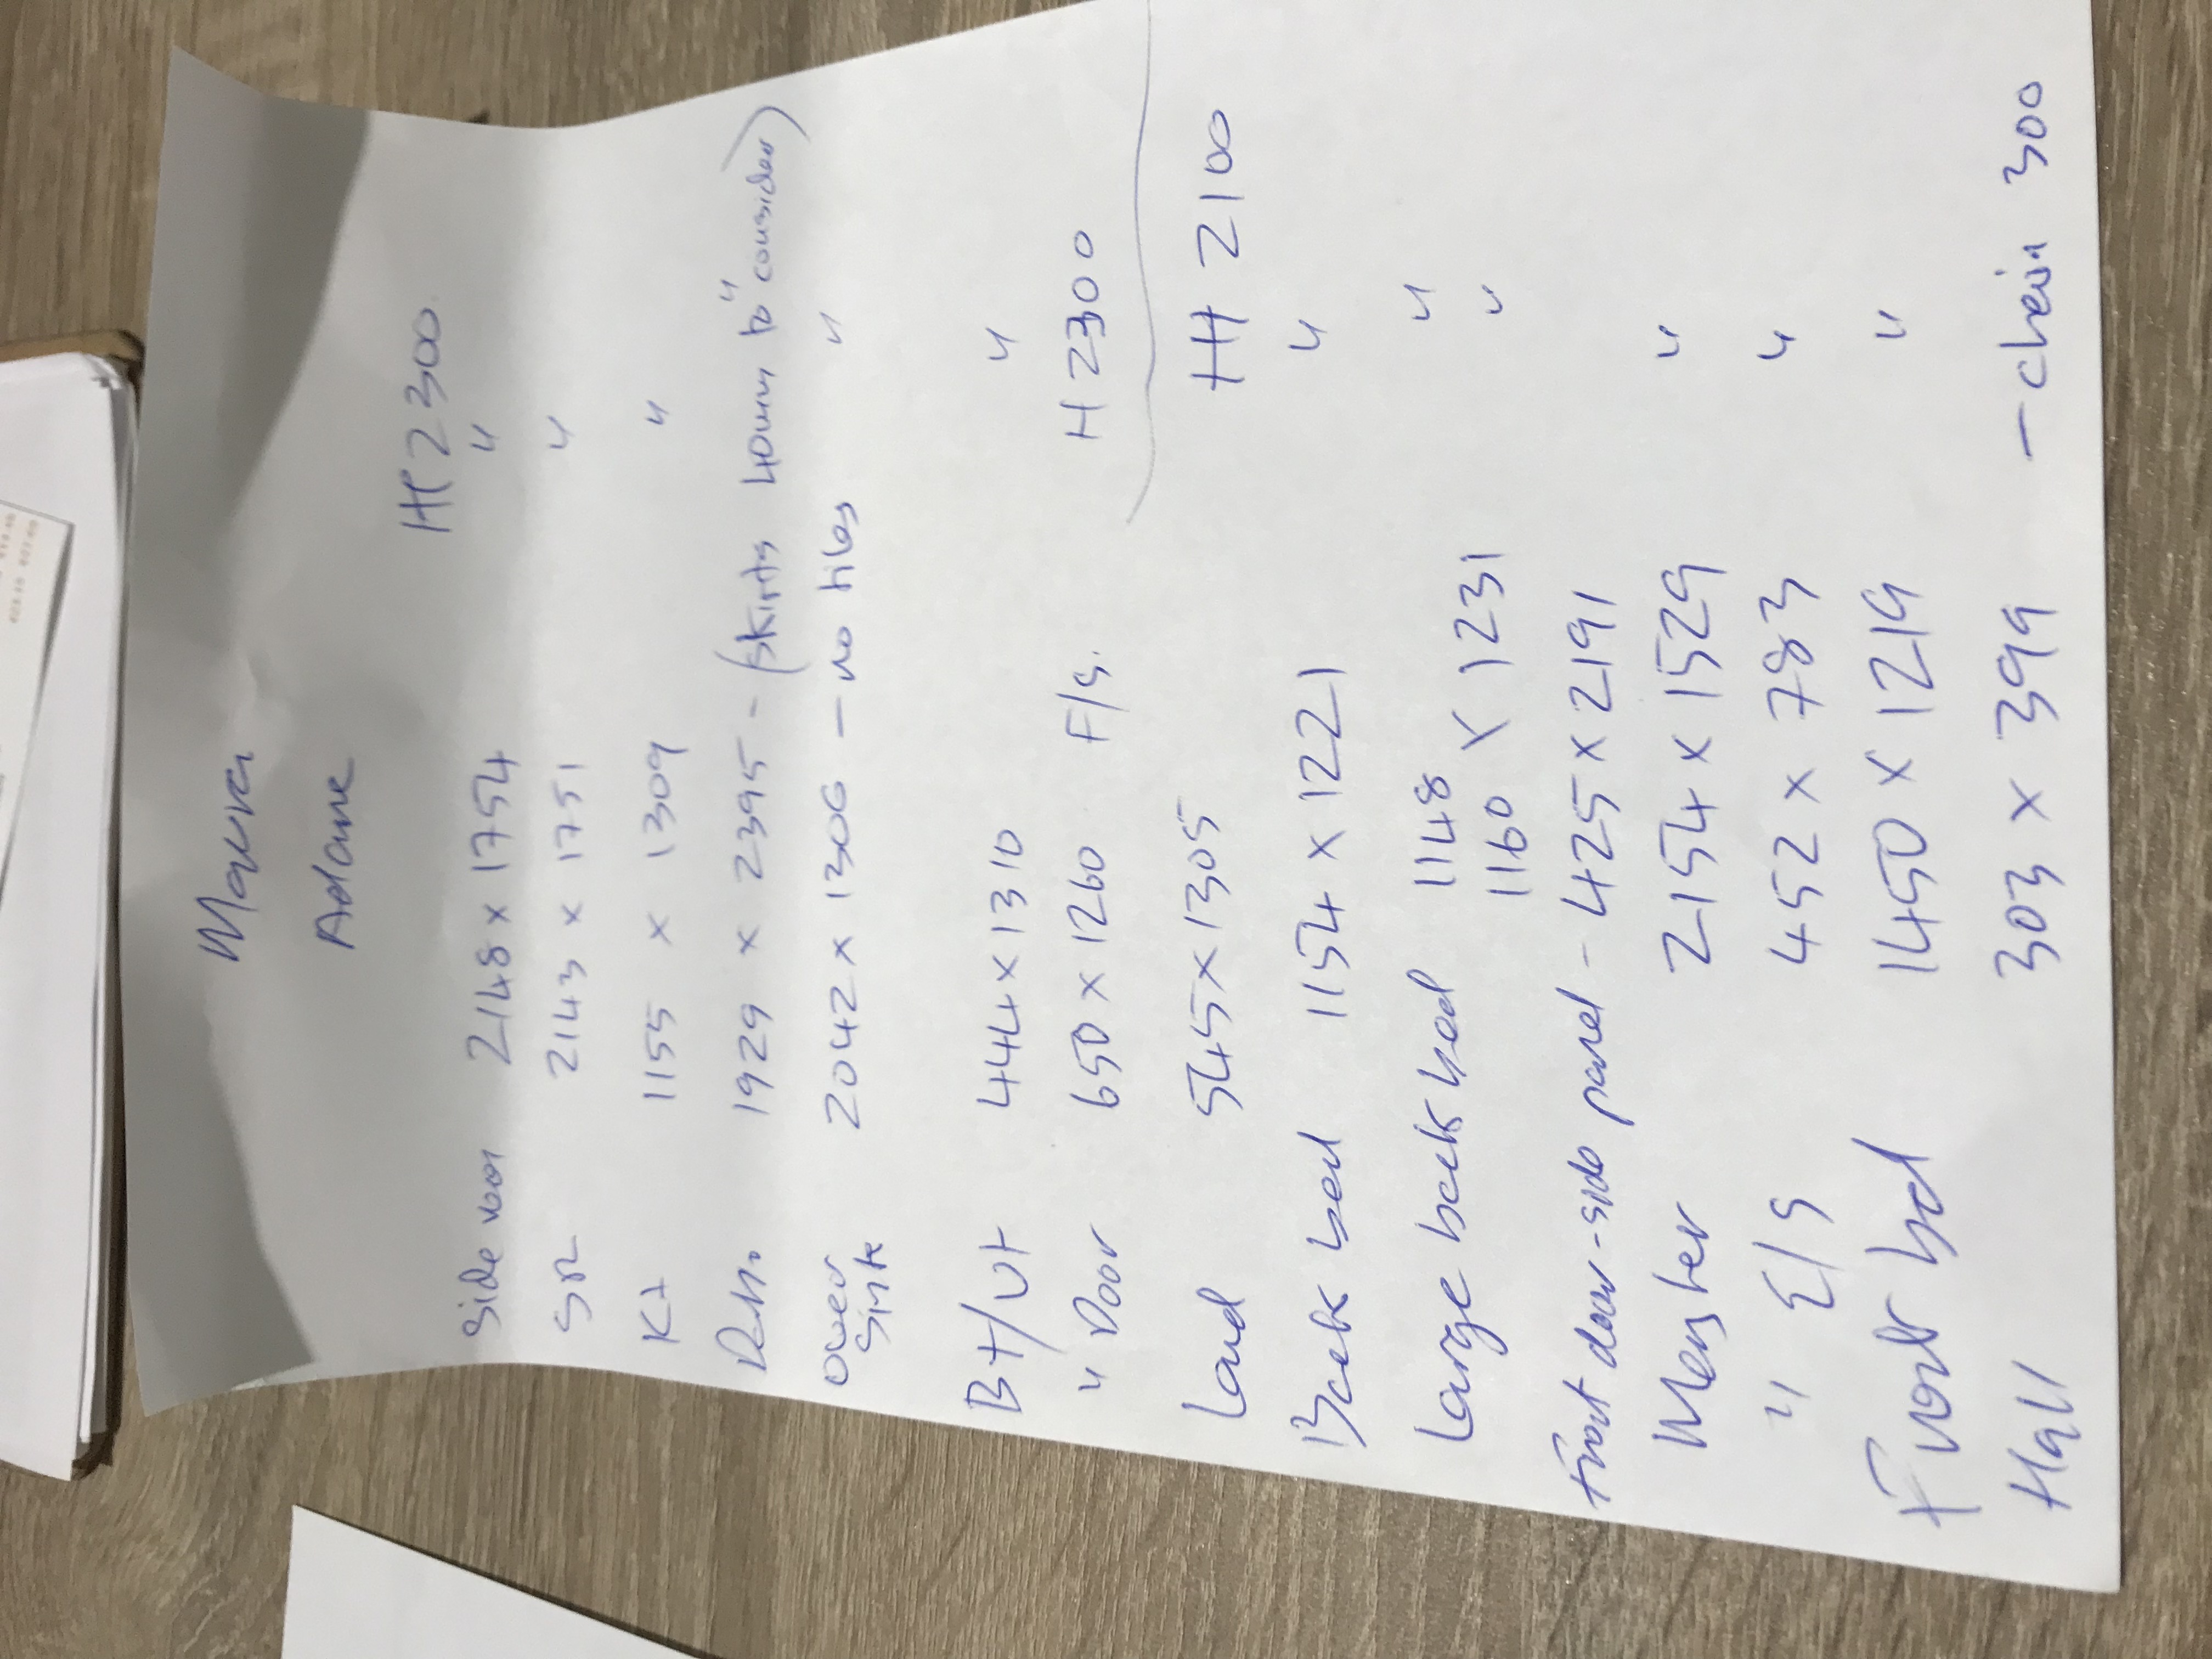 Maura
Adame
H 2300
Side von 2148 x 1754 "
SR 2143 x 1751 "
Kt 1155 x 1309 "
1929 x 2395 - (skirts 40mm to consider) "
Over Sink 2042 x 1306 - no tiles "
Bt/Ut 444 x 1310 "
" Door 650 x 1260 F/s. H 2300
Land 545 x 1305 H 2100
Back bed 1154 x 1221 "
Large back bed 1148 "
1160 x 1231 "
front door-side panel - 425 x 2191
Master 2154 x 1529 "
" E/S 452 x 783 "
Front bed 1450 x 1219 "
Hall 303 x 399 - chain 300